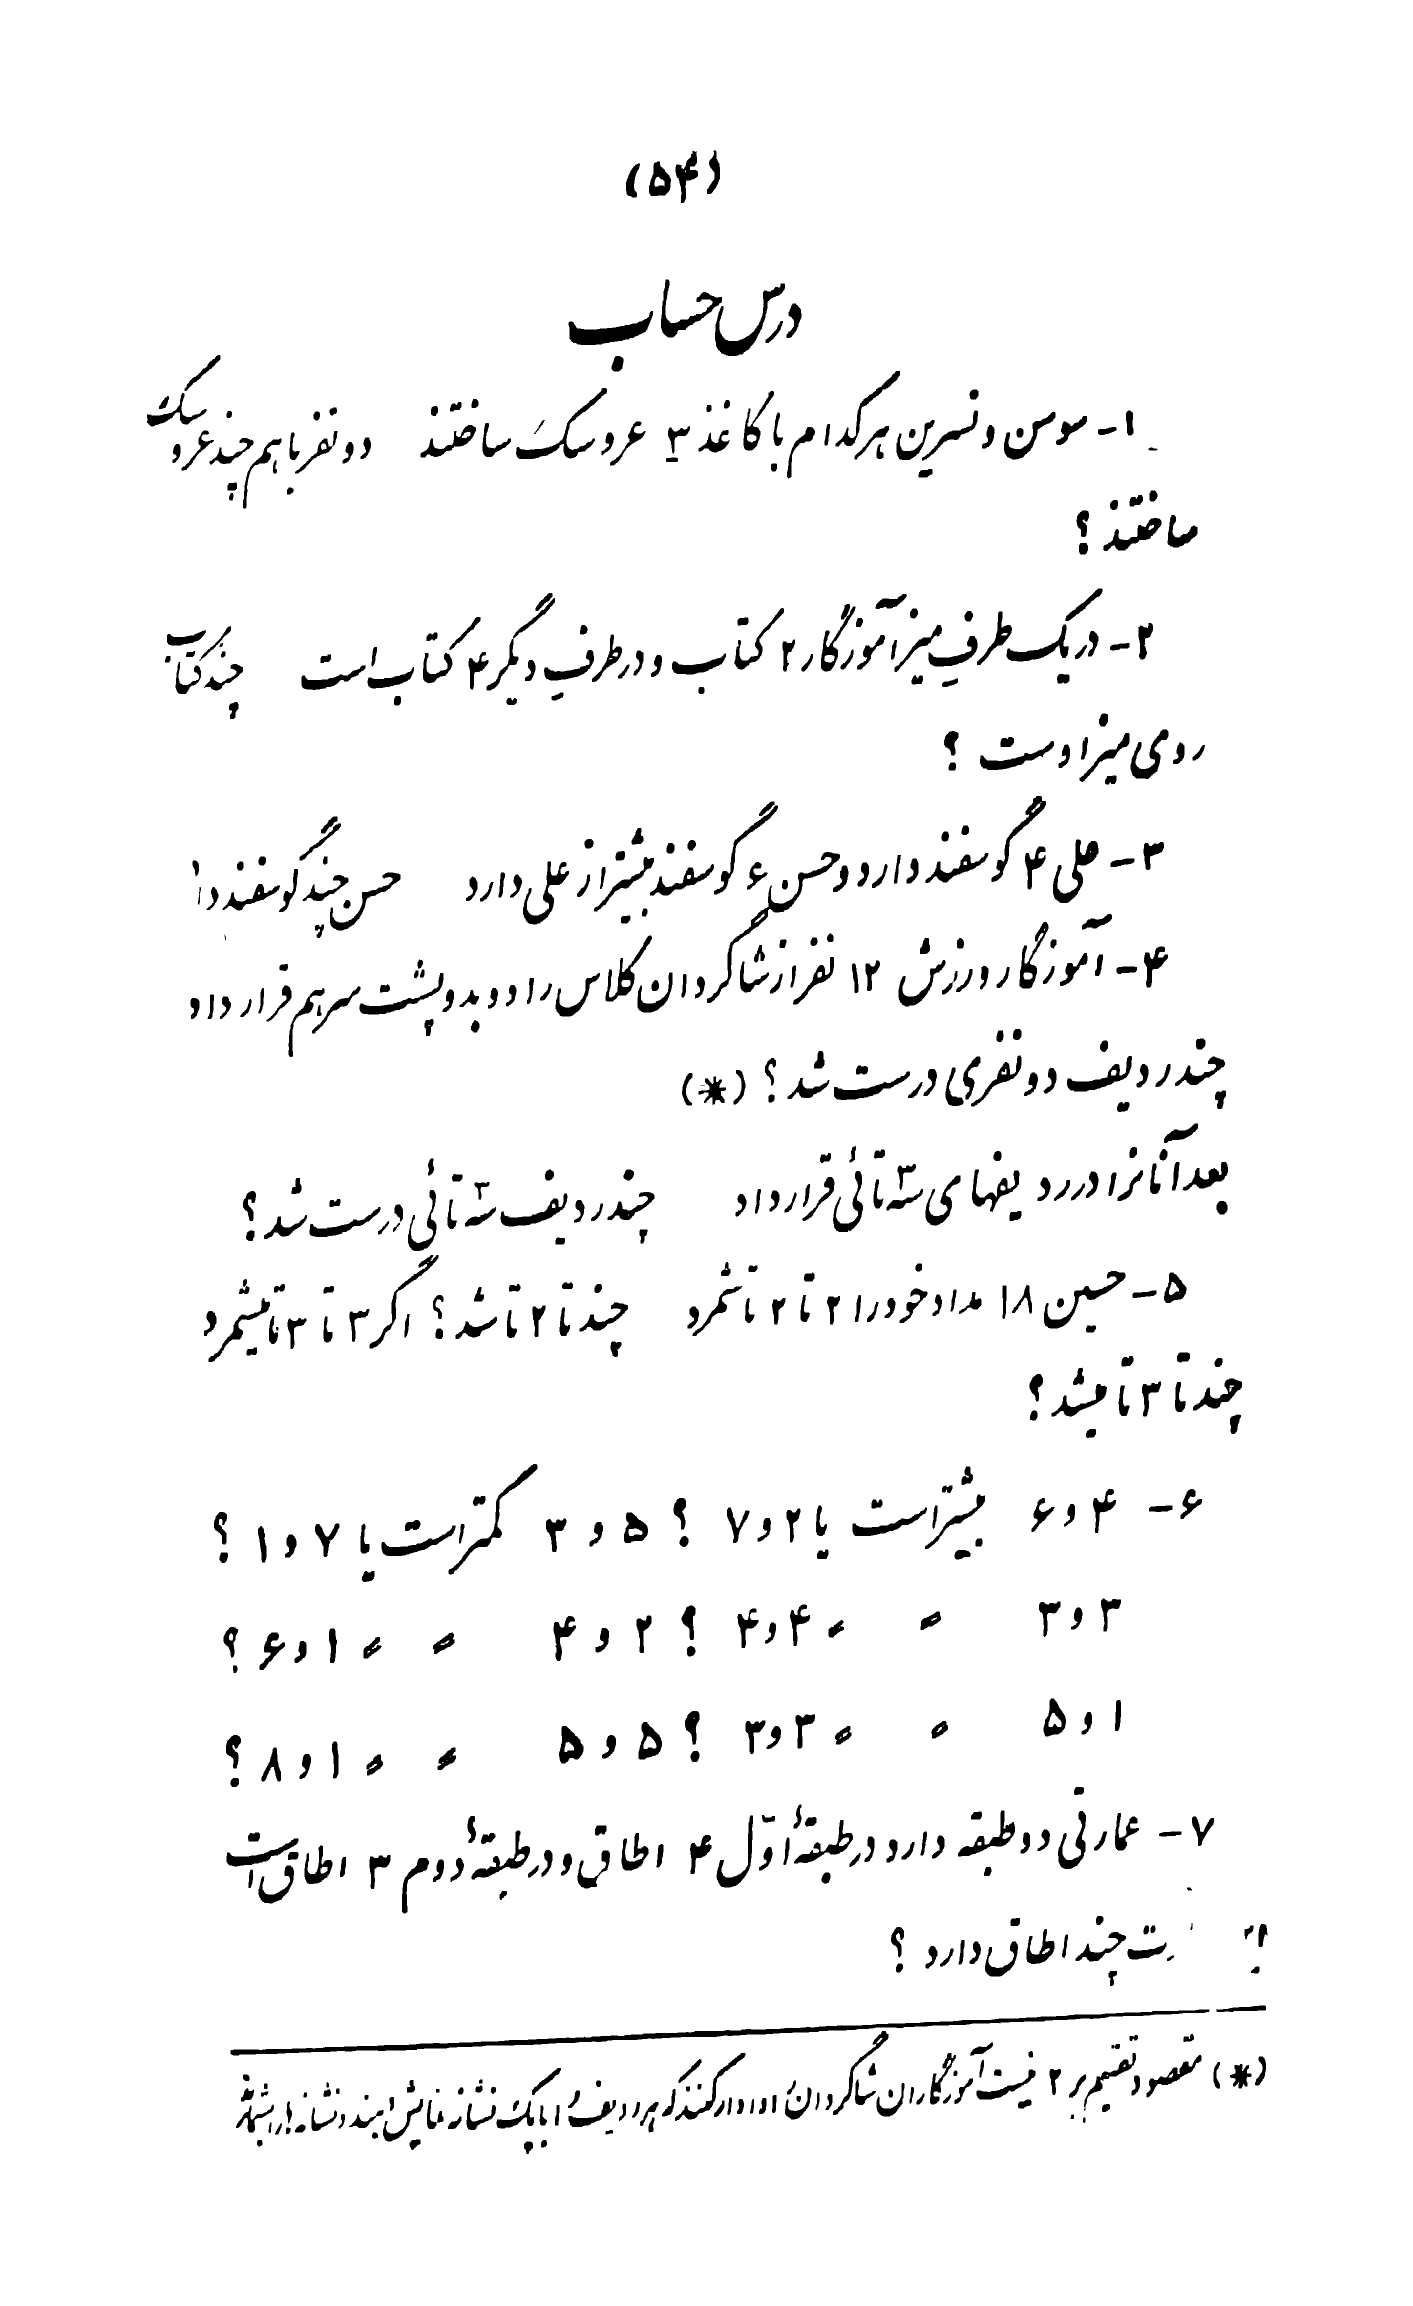 (۵۴)
درس حساب
۱- سوسن و نسرین هر کدام با کاغذ ۳ عروسک ساختند دو نفر با هم چند عروسک
ساختند ؟
۲- در یک طرفِ میز آموزگار ۲ کتاب و در طرفِ دیگر ۴ کتاب است چند کتاب
روی میز اوست ؟
۳- علی ۴ گوسفند دارد و حسن ۶ گوسفند بیشتر از علی دارد حسن چند گوسفند
۴- آموزگار ورزش ۱۲ نفر از شاگردان کلاس را دو بدو پشت سر هم قرار داد
چند ردیف دو نفری درست شد ؟ (*)
بعد آنانرا در ردیفهای سه تائی قرار داد چند ردیف سه تائی درست شد ؟
۵- حسین ۱۸ مداد خود را ۲ تا ۲ تا شمرد چند تا ۲ تا شد ؟ اگر ۳ تا ۳ تا میشمرد
چند تا ۳ تا میشد ؟
۶- ۴ و ۶ بیشتر است یا ۲ و ۷ ؟ ۵ و ۳ کمتر است یا ۷ و ۱ ؟
۳ و ۳ " " ۴ و ۴ ؟ ۲ و ۴ " " ۱ و ۶ ؟
۱ و ۵ " " ۳ و ۳ ؟ ۵ و ۵ " " ۱ و ۸ ؟
۷- عمارتی دو طبقه دارد در طبقهٔ اوّل ۴ اطاق و در طبقهٔ دوم ۳ اطاق است
چند اطاق دارد ؟
(*) مقصود تقسیم بر ۲ نیست آموزگاران شاگردان را وادار کنند که هر ردیف را با یک نشانه نمایش دهند و نشانه ها را بشمارند